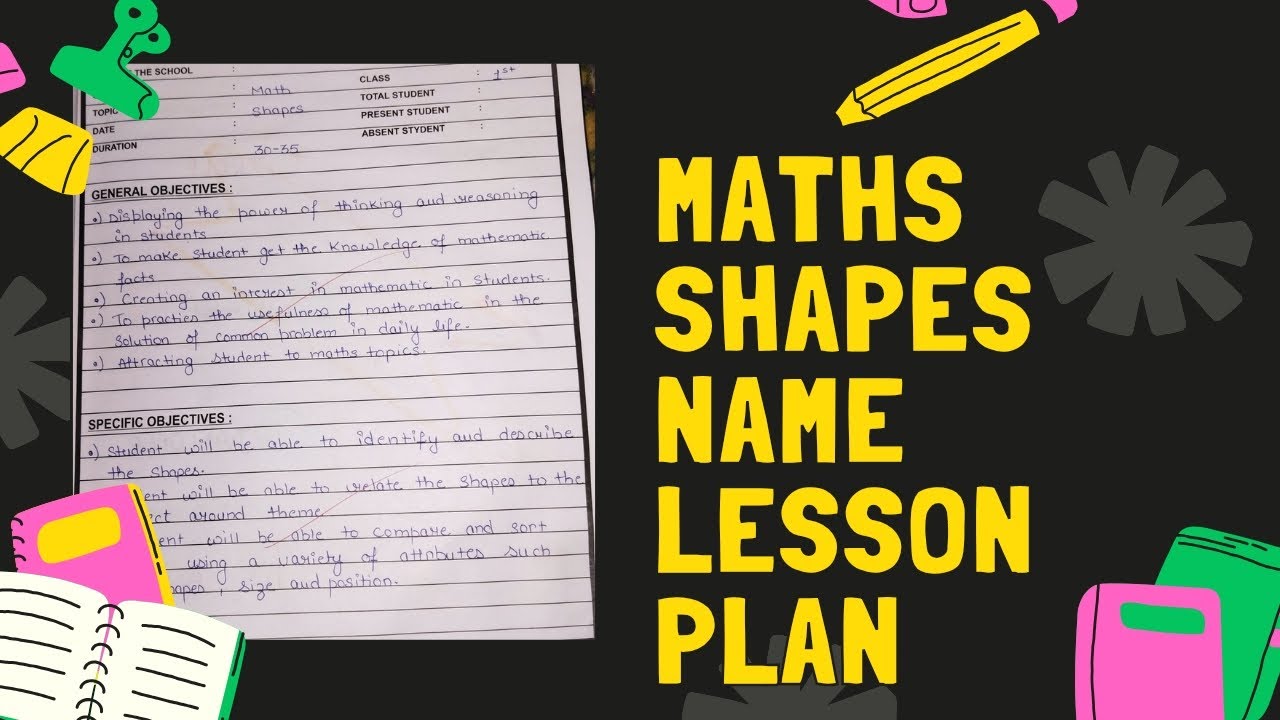 THE SCHOOL :
: Math
TOPIC : Shapes
DATE :
DURATION : 30-35
CLASS : 1st
TOTAL STUDENT :
PRESENT STUDENT :
ABSENT STYDENT :
GENERAL OBJECTIVES :
•) Displaying the power of thinking and reasoning
in students
•) To make student get the knowledge of mathematic
facts
•) Creating an interest in mathematic in students.
•) To practies the usefulness of mathematic in the
solution of common problem in daily life.
•) Attracting student to maths topics.
SPECIFIC OBJECTIVES :
•) Student will be able to identify and describe
the shapes.
will be able to relate the shapes to the
around theme
will be able to compare and sort
using a variety of attributes such
, size and position.
MATHS
SHAPES
NAME
LESSON
PLAN